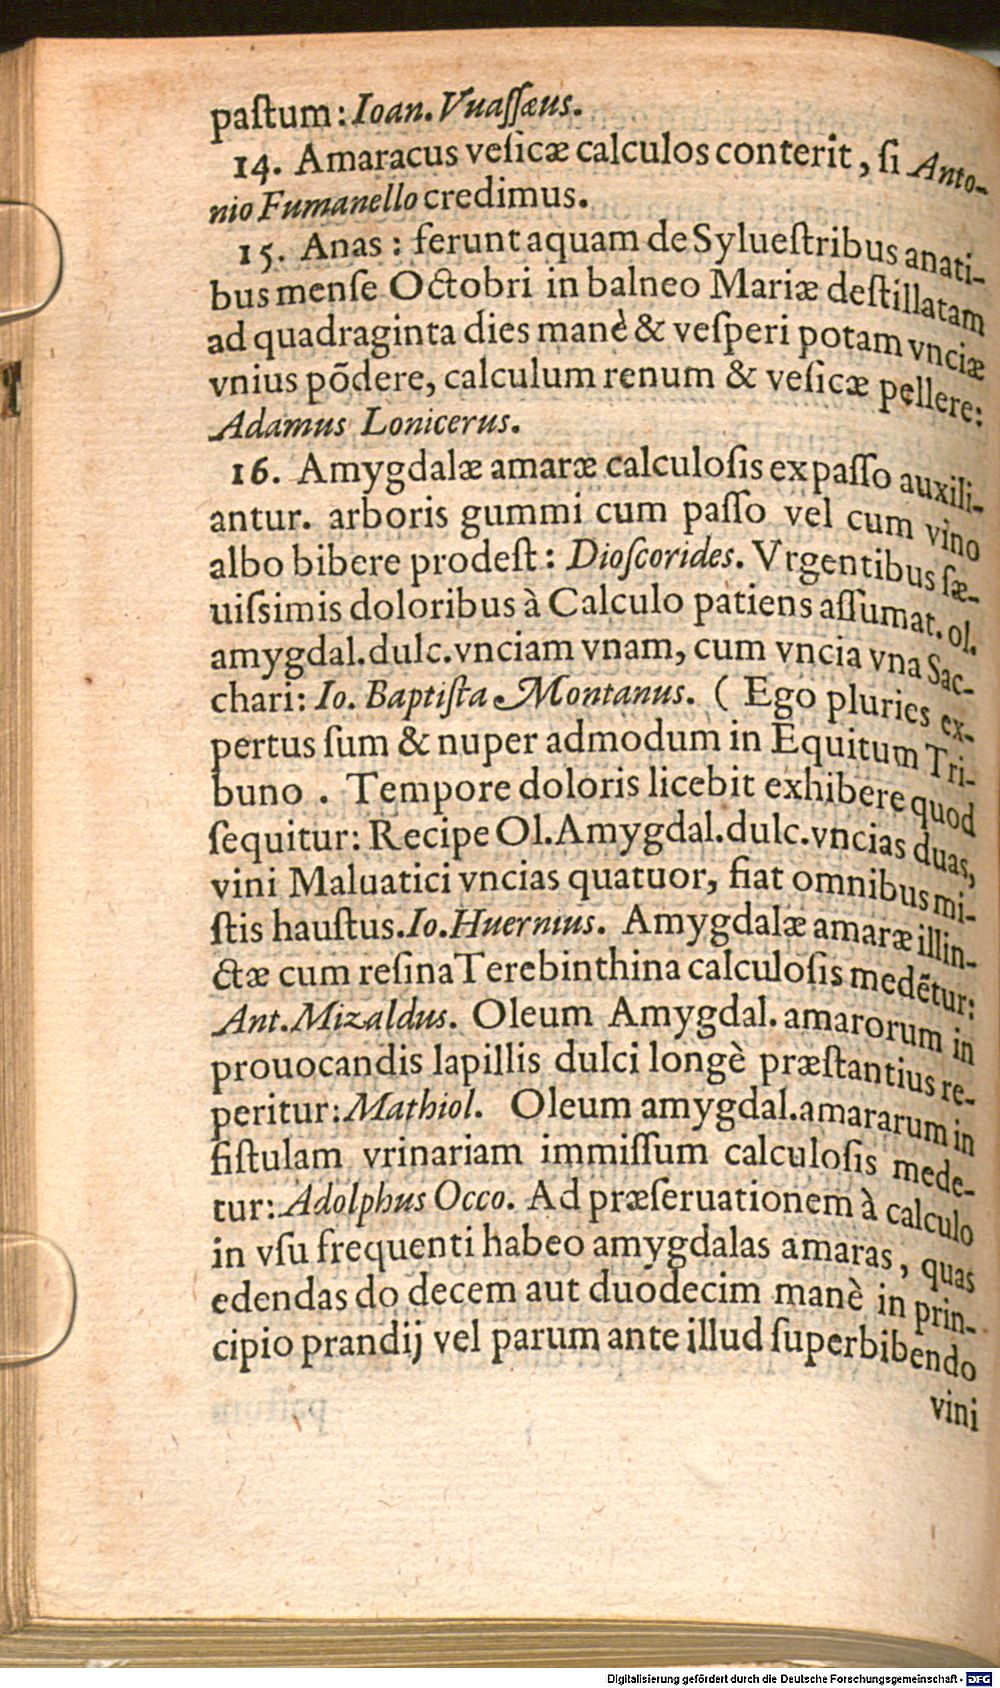 paſtum: Ioan. Vuaſſæus.
14. Amaracus veſicæ calculos conterit, ſi Anto-
nio Fumanello credimus.
15. Anas: ferunt aquam de Syluestribus anati-
bus menſe Octobri in balneo Mariæ deſtillatam
ad quadraginta dies manè & veſperi potam vnciæ
vnius põdere, calculum renum & veſicæ pellere:
Adamus Lonicerus.
16. Amygdalæ amaræ calculoſis ex paſſo auxili-
antur. arboris gummi cum paſſo vel cum vino
albo bibere prodeſt: Dioſcorides. Vrgentibus ſæ-
uiſsimis doloribus à Calculo patiens aſſumat. ol.
amygdal. dulc. vnciam vnam, cum vncia vna Sac-
chari: Io. Baptiſta Montanus. ( Ego pluries ex-
pertus ſum & nuper admodum in Equitum Tri-
buno . Tempore doloris licebit exhibere quod
ſequitur: Recipe Ol. Amygdal. dulc. vncias duas,
vini Maluatici vncias quatuor, fiat omnibus mi-
ſtis hauſtus. Io. Huernius. Amygdalæ amaræ illin-
ctæ cum reſina Terebinthina calculoſis medẽtur:
Ant. Mizaldus. Oleum Amygdal. amarorum in
prouocandis lapillis dulci longè præſtantius re-
peritur: Mathiol. Oleum amygdal. amararum in
fiſtulam vrinariam immiſſum calculoſis mede-
tur: Adolphus Occo. Ad præſeruationem à calculo
in vſu frequenti habeo amygdalas amaras, quas
edendas do decem aut duodecim manè in prin-
cipio prandij vel parum ante illud ſuperbibendo
vini
Digitalisierung gefördert durch die Deutsche Forschungsgemeinschaft - DFG